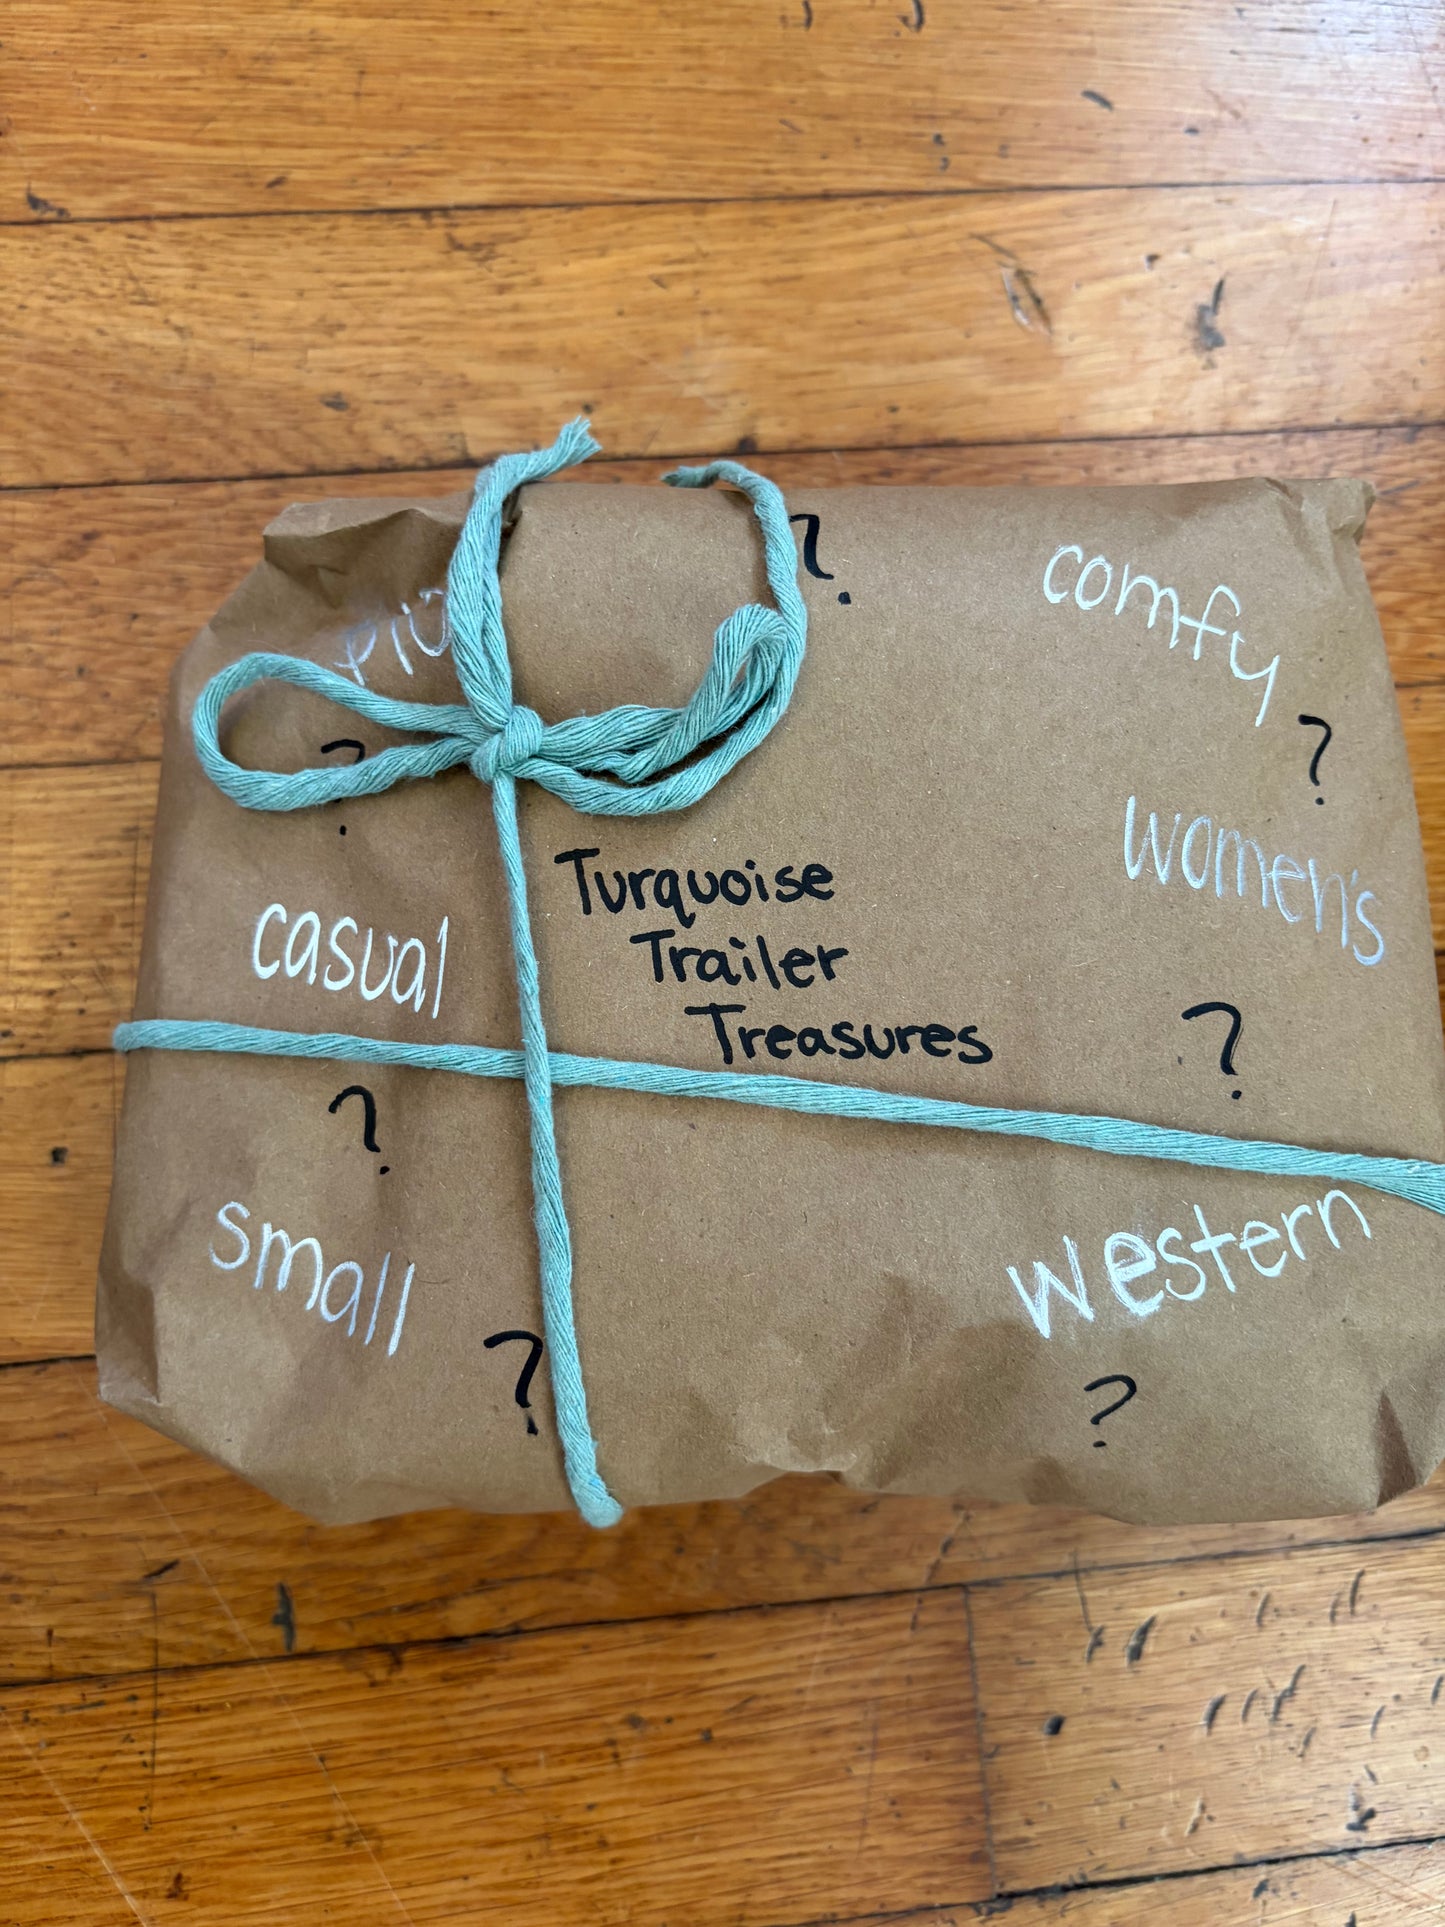 ?
comfy
?
?
women's
Turquoise
Trailer
Treasures
casual
?
?
small
western
?
?